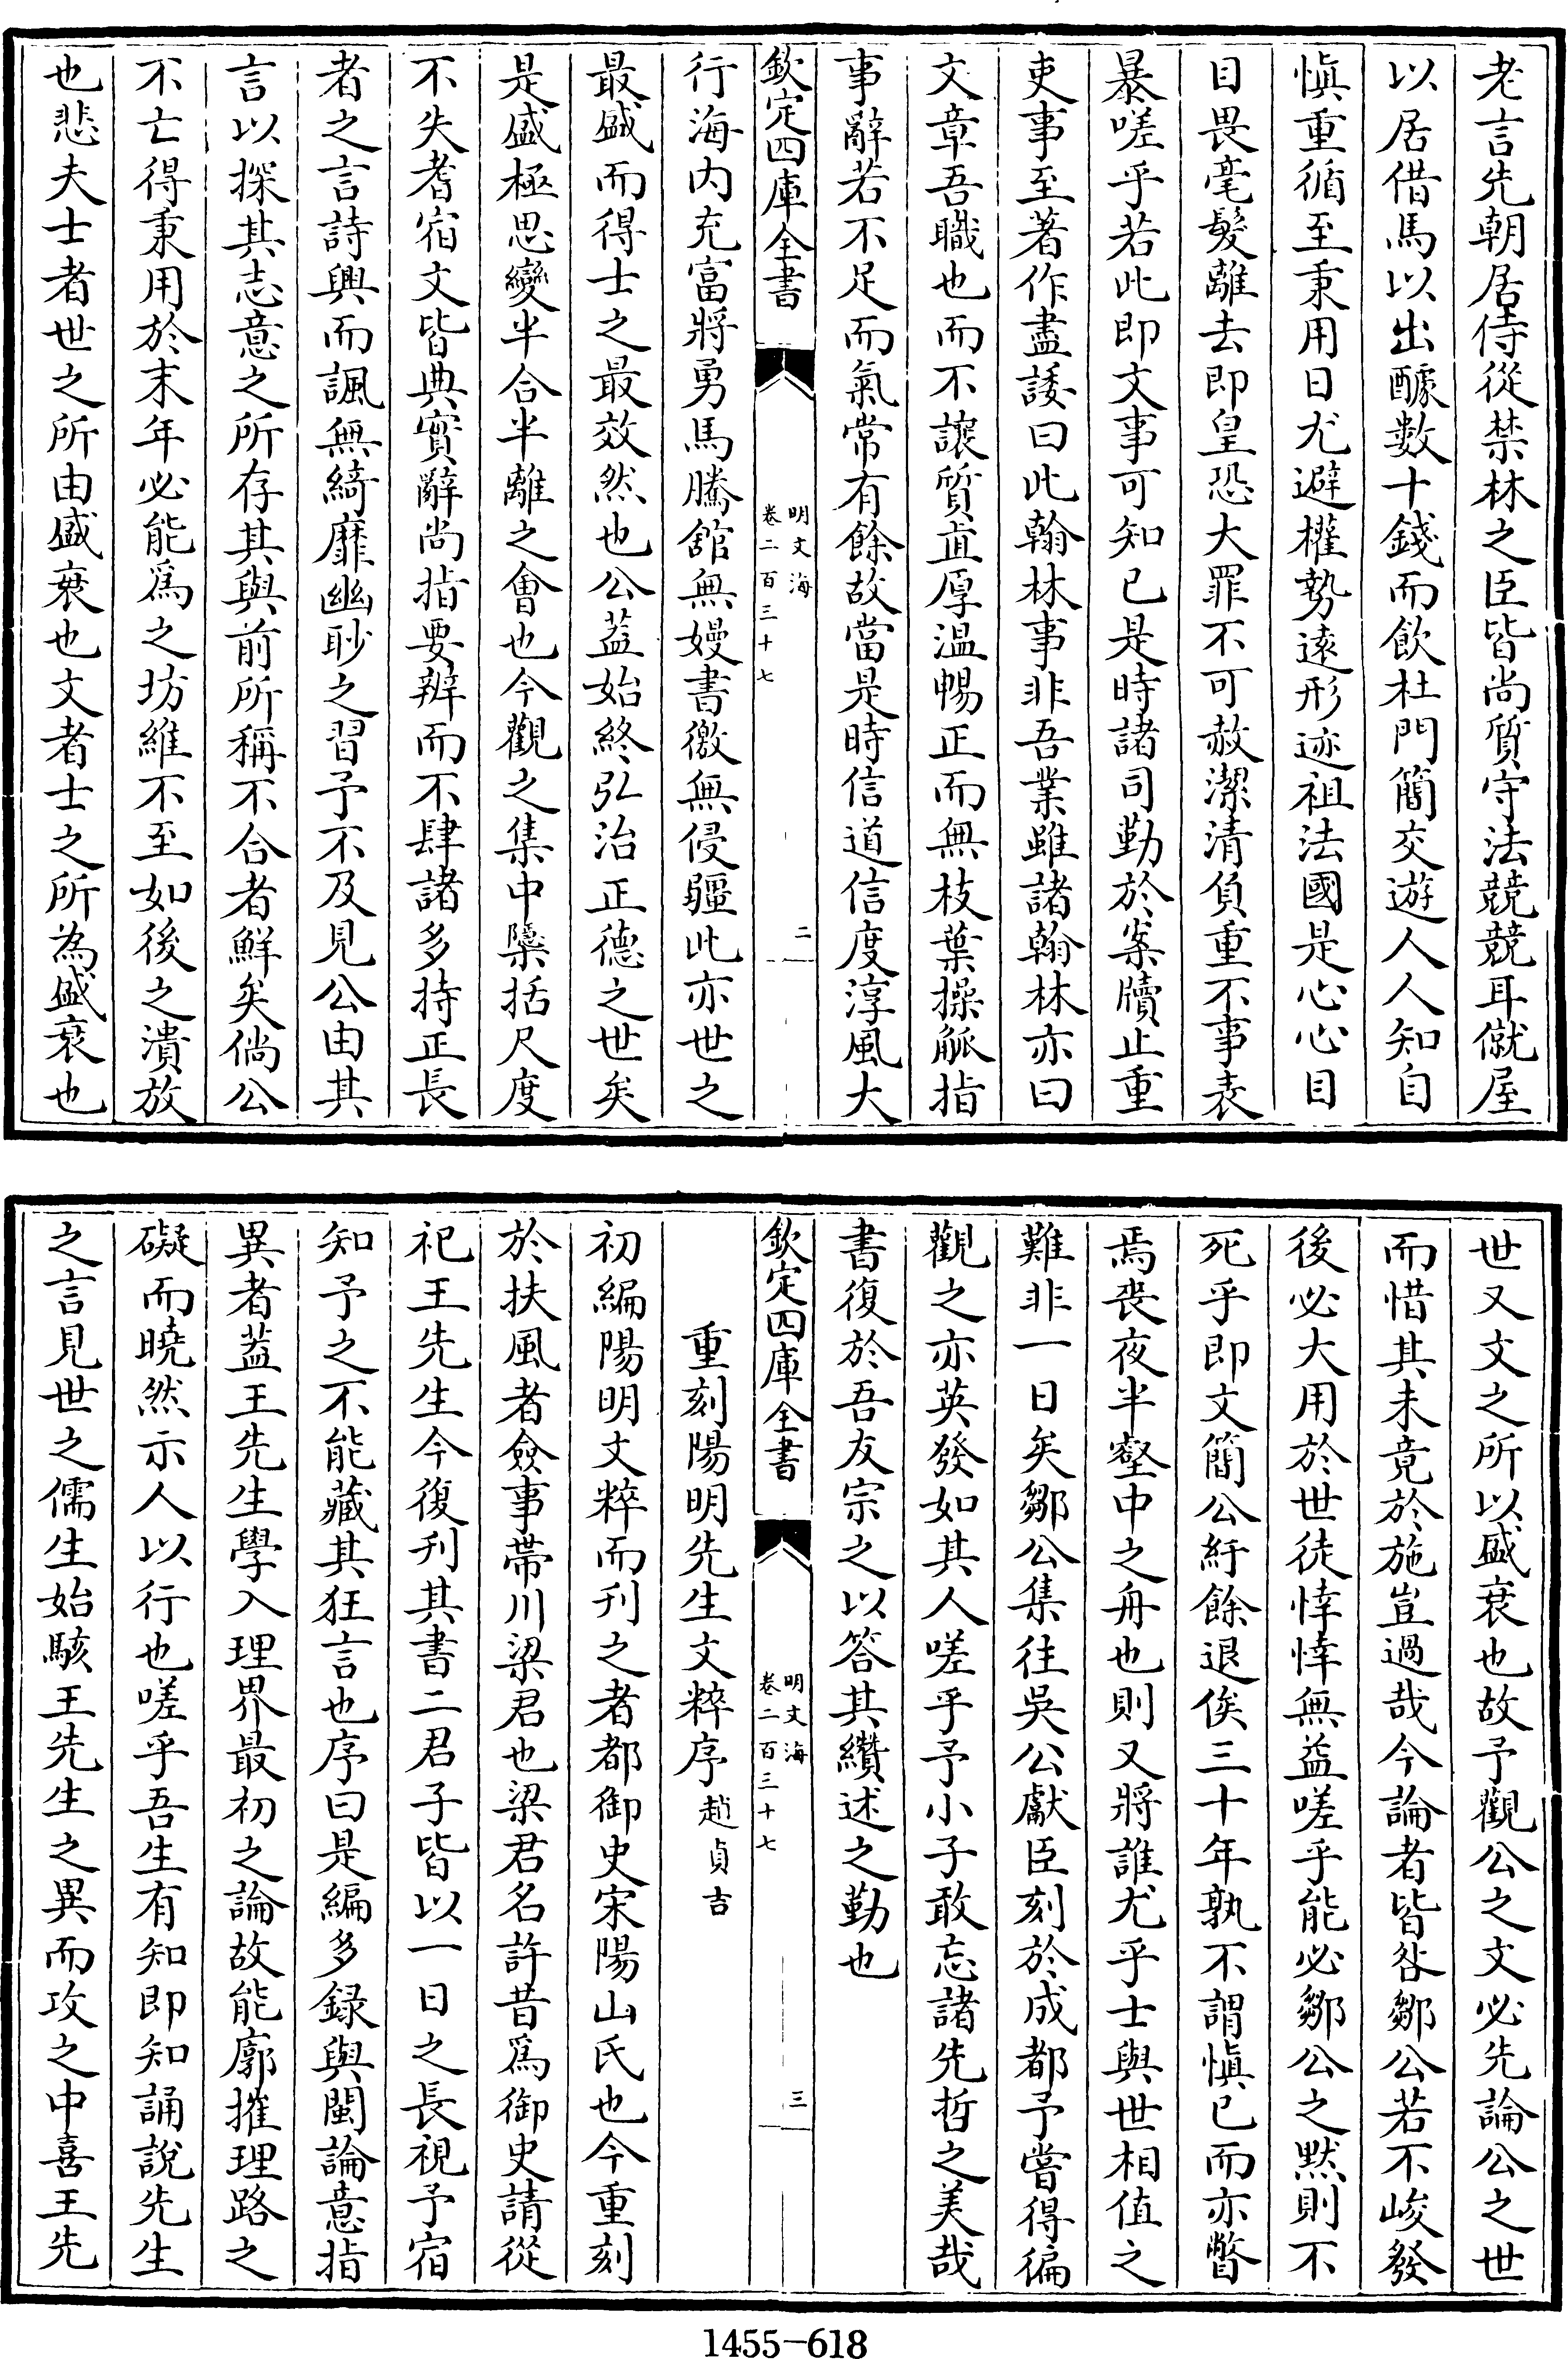 老言先朝居侍從禁林之臣皆尚質守法競競耳僦屋
以居借馬以出醵數十錢而飲杜門簡交遊人人知自
慎重循至秉用日尤避權勢遠形迹祖法國是心心目
目畏毫髮離去即皇恐大罪不可赦潔清負重不事表
暴嗟乎若此即文事可知已是時諸司勤於案牘止重
吏事至著作盡諉曰此翰林事非吾業雖諸翰林亦曰
文章吾職也而不讓質直厚溫暢正而無枝葉操觚指
事辭若不足而氣常有餘故當是時信道信度淳風大
欽定四庫全書 明文海 卷二百三十七 二
行海內充富將勇馬騰舘無嫚書徼無侵疆此亦世之
最盛而得士之最效然也公蓋始終弘治正德之世矣
是盛極思變半合半離之會也今觀之集中櫽括尺度
不失耆宿文皆典實辭尚指要辨而不肆諸多持正長
者之言詩興而諷無綺靡幽眇之習予不及見公由其
言以探其志意之所存其與前所稱不合者鮮矣倘公
不亡得秉用於末年必能爲之坊維不至如後之潰放
也悲夫士者世之所由盛衰也文者士之所為盛衰也
世又文之所以盛衰也故予觀公之文必先論公之世
而惜其未竟於施豈過哉今論者皆咎鄒公若不峻發
後必大用於世徒悻悻無益嗟乎能必鄒公之默則不
死乎即文簡公紆餘退俟三十年孰不謂慎已而亦瞥
焉喪夜半壑中之舟也則又將誰尤乎士與世相值之
難非一日矣鄒公集往吳公獻臣刻於成都予嘗得徧
觀之亦英發如其人嗟乎予小子敢忘諸先哲之美哉
書復於吾友宗之以答其纘述之勤也
欽定四庫全書 明文海 卷二百三十七 三
重刻陽明先生文粹序 趙貞吉
初編陽明文粹而刋之者都御史宋陽山氏也今重刻
於扶風者僉事帶川梁君也梁君名許昔爲御史請從
祀王先生今復刋其書二君子皆以一日之長視予宿
知予之不能藏其狂言也序曰是編多録與閩論意指
異者蓋王先生學入理界最初之論故能廓摧理路之
礙而曉然示人以行也嗟乎吾生有知即知誦說先生
之言見世之儒生始駭王先生之異而攻之中喜王先
1455-618